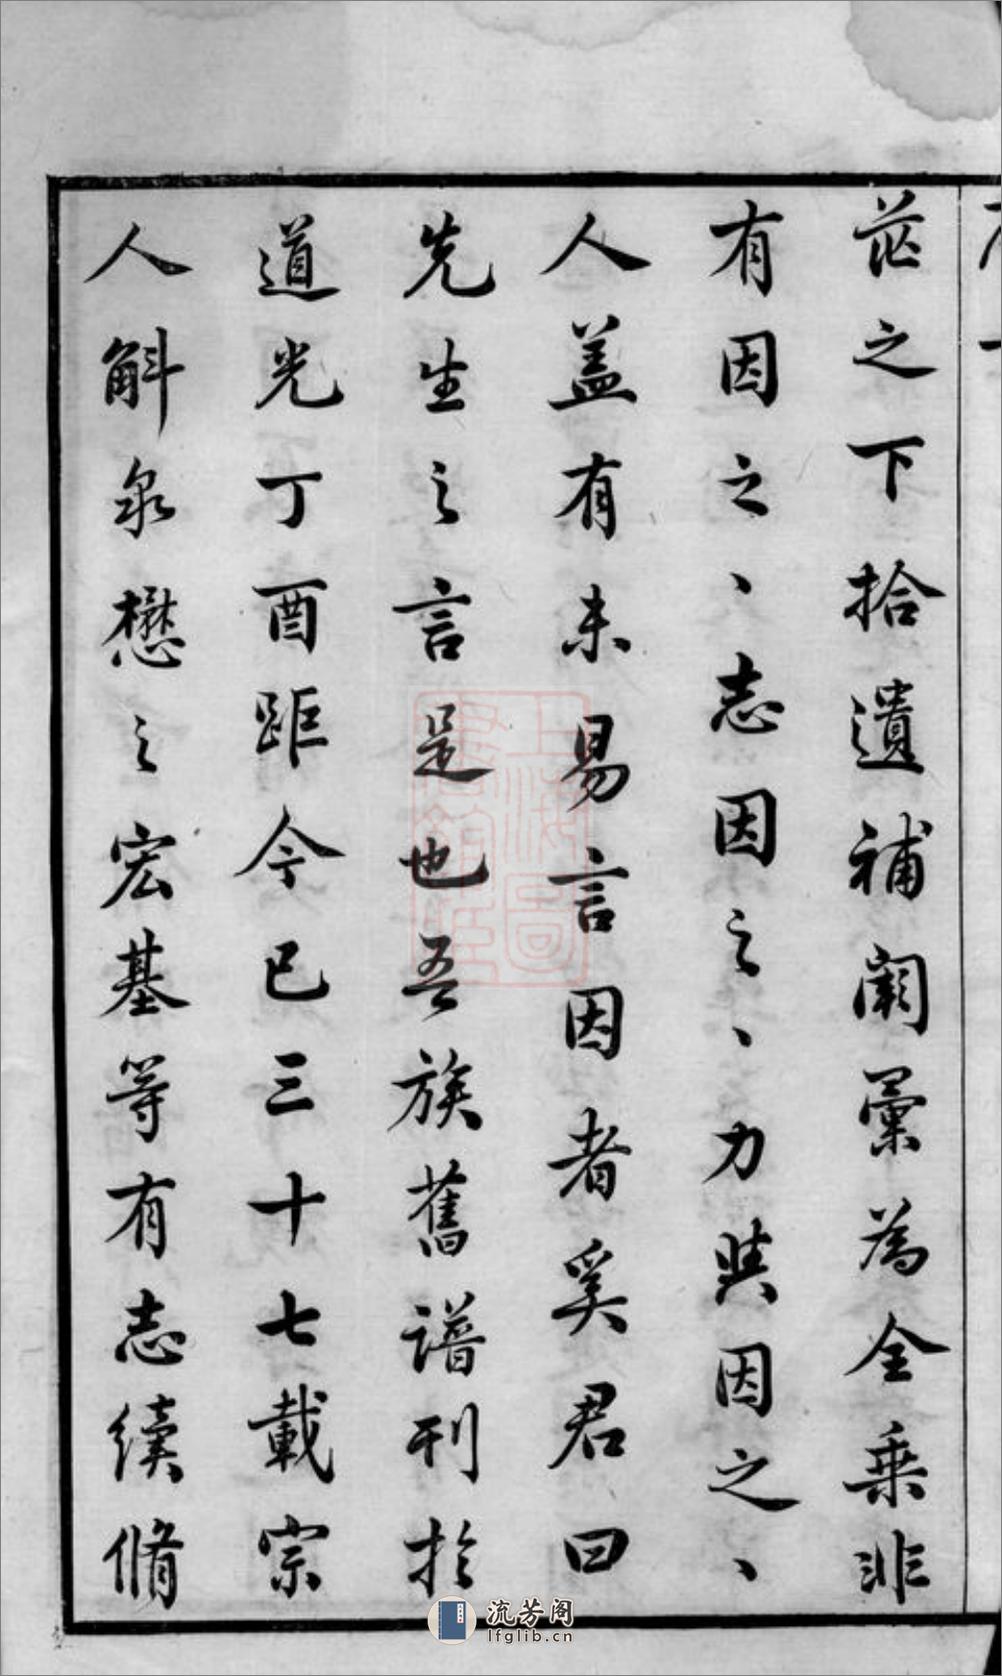 茫之下拾遺補闕彚為全乗非
有因之、志因之、力與因之、
人盖有未易言因者奚君曰
先生之言是也吾族舊譜刊於
道光丁酉距今已三十七載宗
人斛泉懋之宏基等有志續脩
上海圖書館藏
流芳阁
lfglib.cn